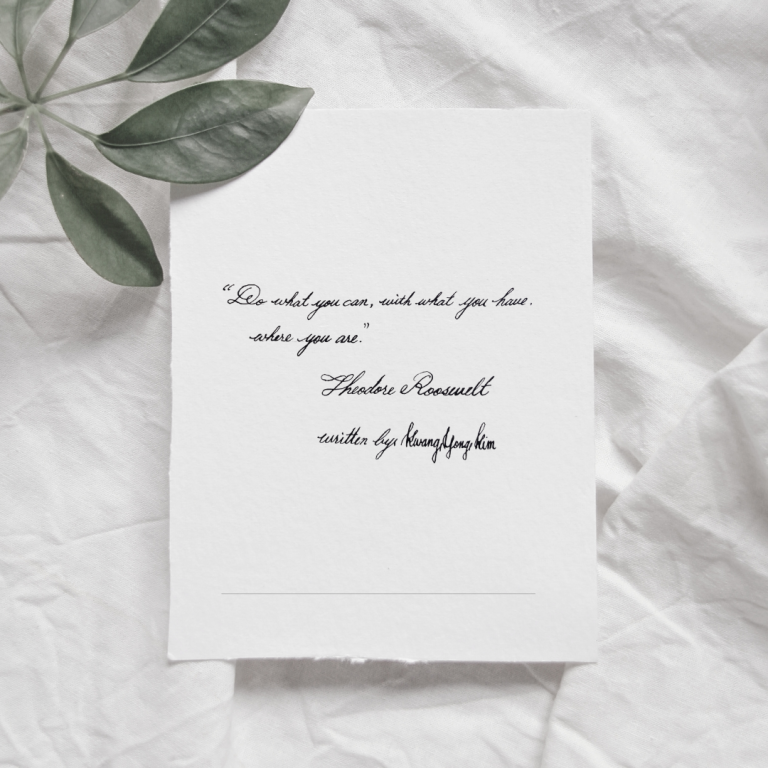 “Do what you can, with what you have.
where you are.”
Theodore Roosevelt
written by: Kwang Yong Kim